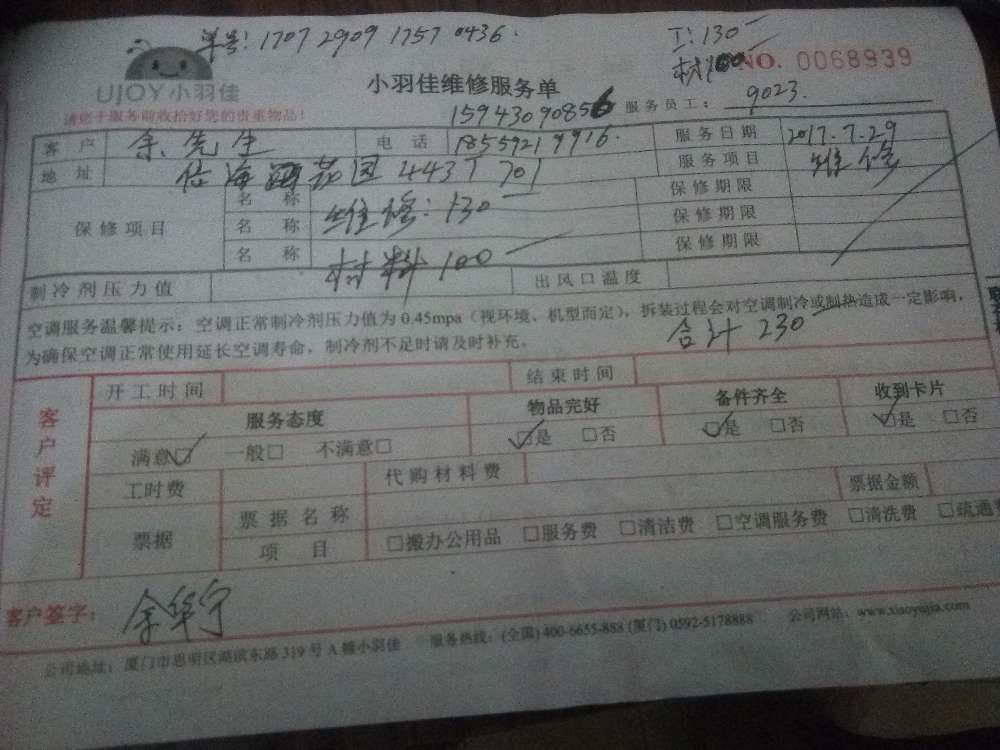 单号: 1707 2909 1757 0436.
工: 130
材100
NO. 0068939
UJOY小羽佳
小羽佳维修服务单
请您于服务前收拾好您的贵重物品!
15943090856
服务员工: 9023.
客 户 余先生 电 话 18559219916. 服务日期 2017.7.29
地 址 花园 443T 701 服务项目 维修
保修项目 名 称 保修期限
名 称 维修: 130 保修期限
名 称 材料 100 保修期限
制冷剂压力值 出风口温度
空调服务温馨提示: 空调正常制冷剂压力值为 0.45mpa (视环境、机型而定), 拆装过程会对空调制冷或制热造成一定影响,
为确保空调正常使用延长空调寿命, 制冷剂不足时请及时补充。
合计 230
客户评定
开工时间 结束时间
服务态度 物品完好 备件齐全 收到卡片
满意□ 一般□ 不满意□ □是 □否 □是 □否 □是 □否
工时费 代购材料费 票据金额
票据 票据名称
项 目 □搬办公用品 □服务费 □清洁费 □空调服务费 □清洗费 □疏通
客户签字: 余华宁
公司地址: 厦门市思明区湖滨东路 319 号 A 幢小羽佳 服务热线: (全国) 400-6655-888 (厦门) 0592-5178888 公司网站: www.xiaoyujia.com